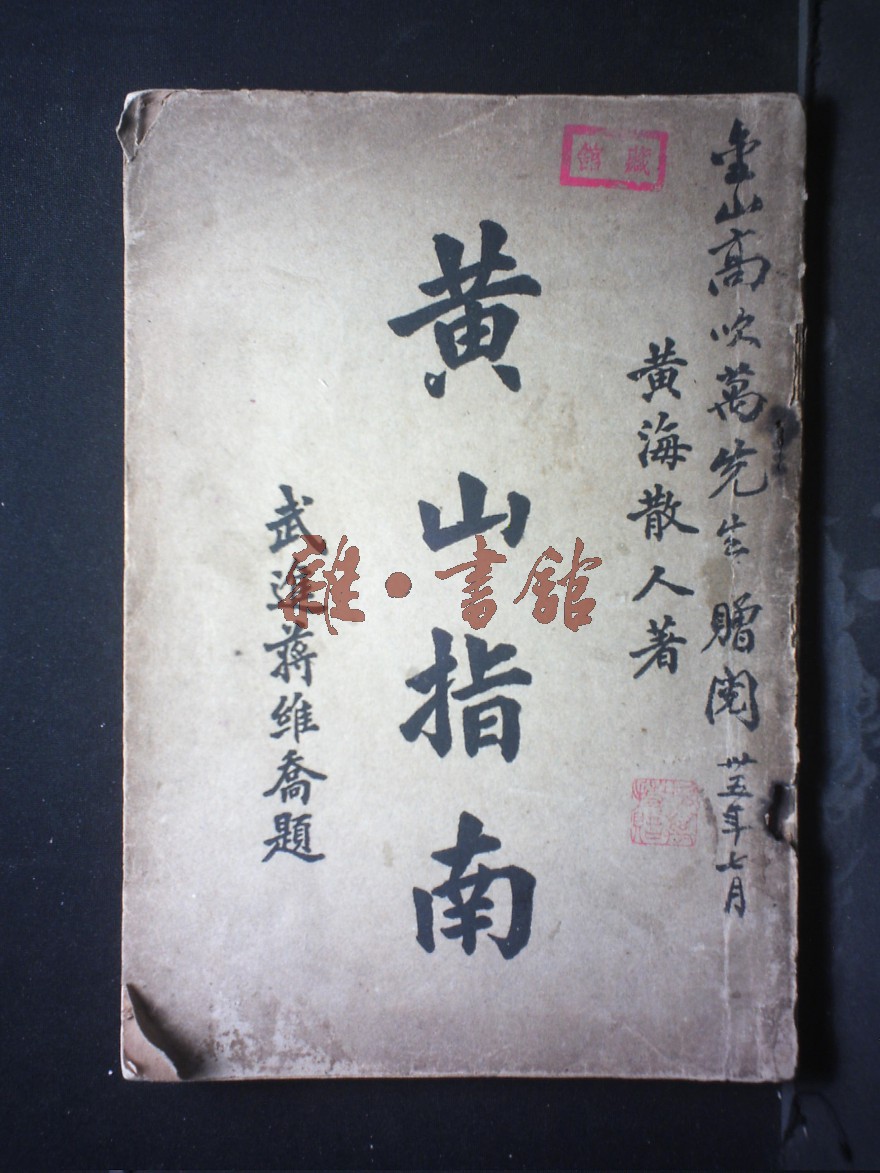 金山高吹萬先生贈閱 卅五年七月
館藏
黃海散人著
黃山指南
武進蔣維喬題
雜·書館